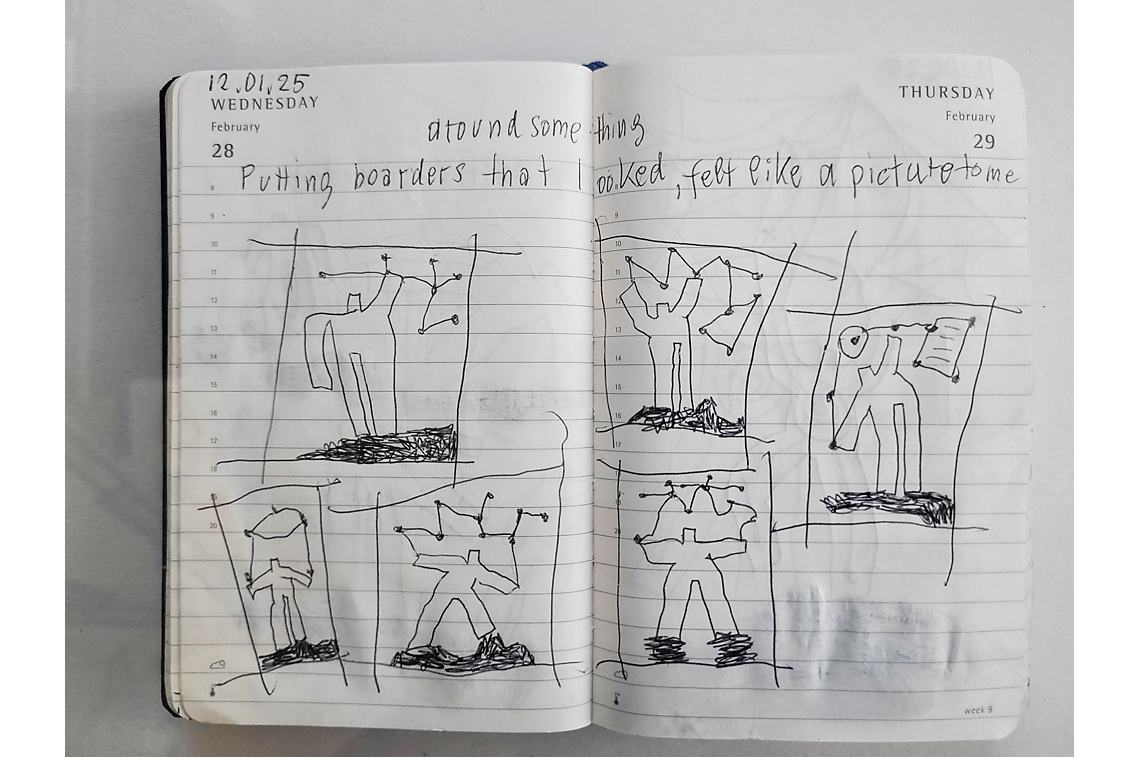 12.01.25
WEDNESDAY
February
28
THURSDAY
February
29
around something
Putting boarders that looked, felt like a picture to me
8
9
10
11
12
13
14
15
16
17
18
19
20
9
10
11
12
13
14
15
16
17
19
20
week 9